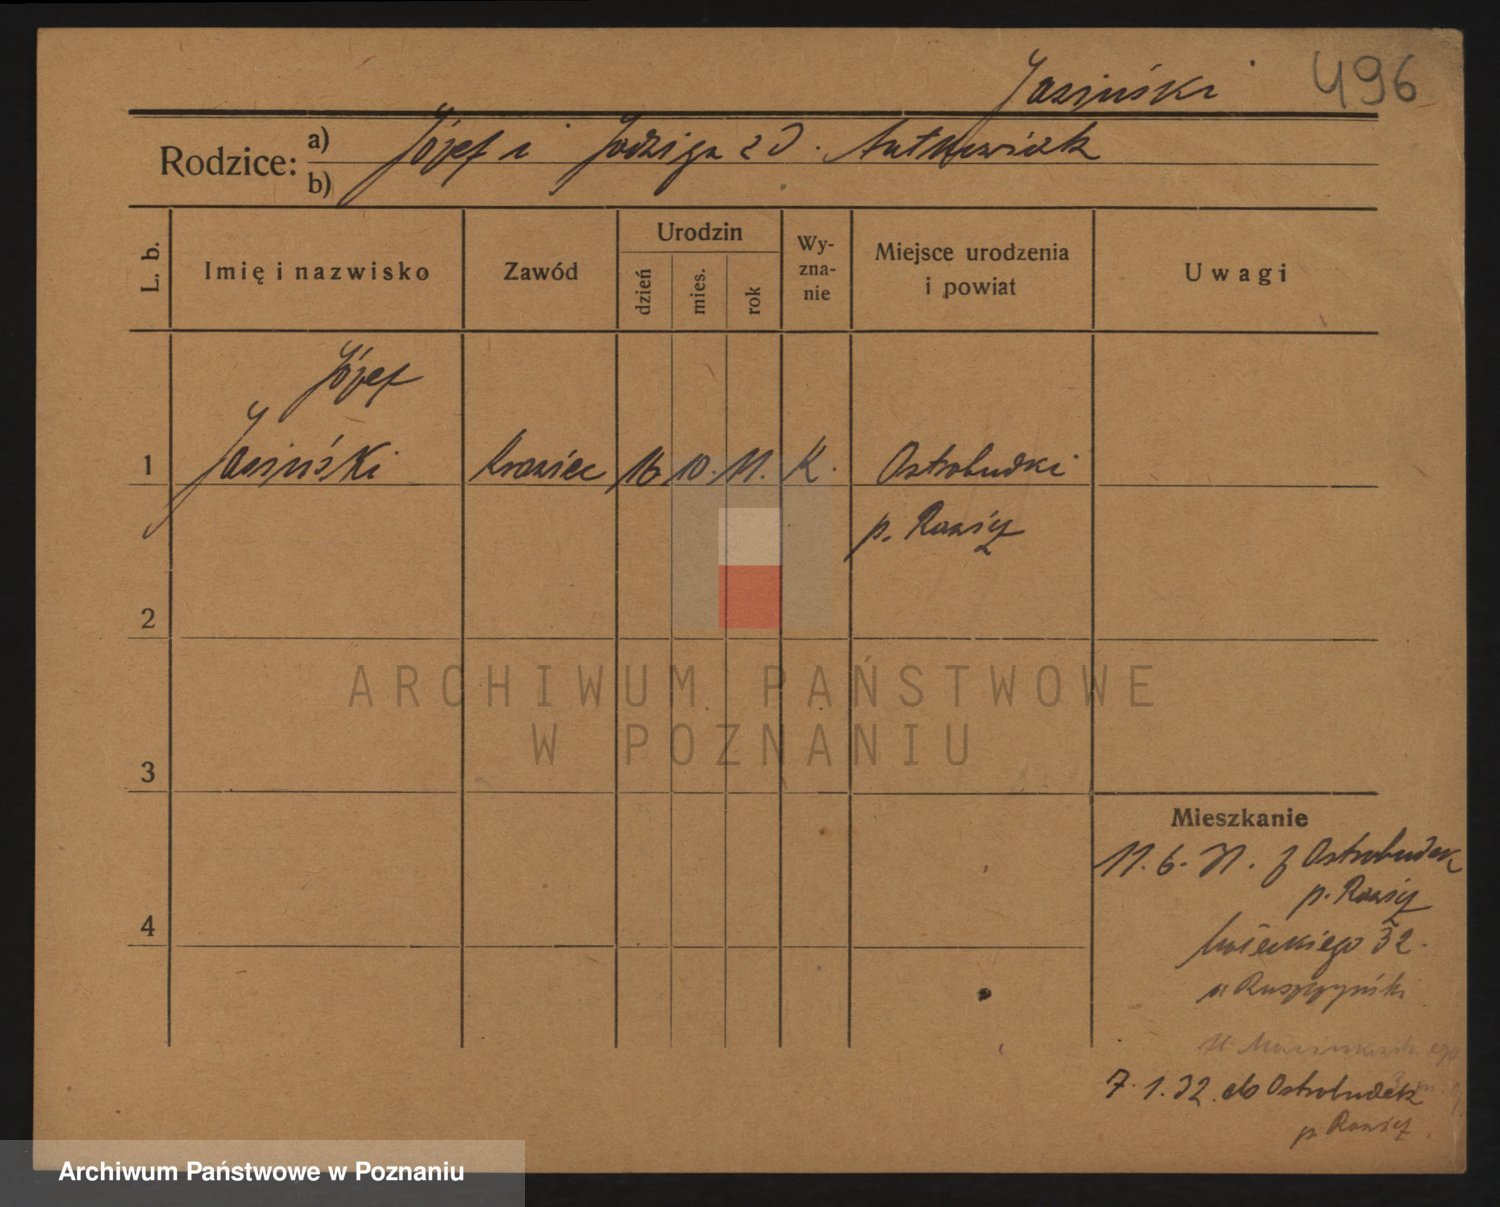 Jasiński 496
Rodzice: a) Józef i Jadwiga z d. Antkowiak
b)
L. b. Imię i nazwisko Zawód Urodzin dzień mies. rok Wyznanie Miejsce urodzenia i powiat Uwagi
Józef
1 Jasiński Krawiec 16 10. 11. K. Ostrobudki
p. Rawicz
2
ARCHIWUM PAŃSTWOWE
W POZNANIU
3
Mieszkanie
11. 6. 31. z Ostrobudek
p. Rawicz
4
32.
u
7. 1. 32. do Ostrobudek
p. Rawicz
Archiwum Państwowe w Poznaniu